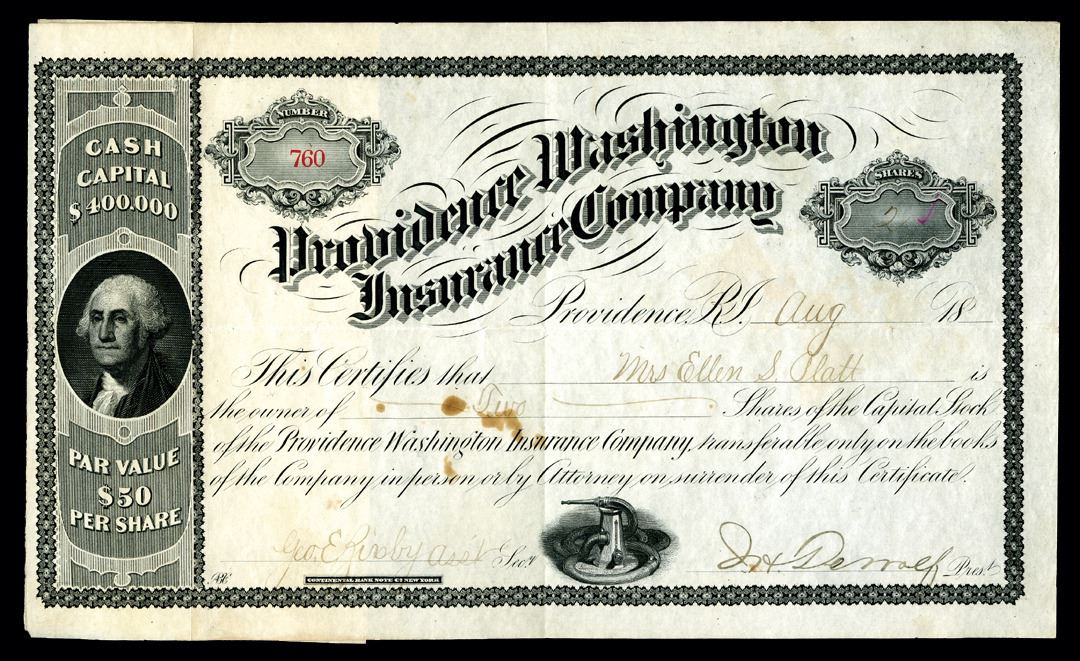 CASH
CAPITAL
$400.000
NUMBER
760
Providence Washington
Insurance Company
SHARES
2
Providence, R.I. Aug 18
This Certifies that Mrs Ellen S Platt is
the owner of Two Shares of the Capital Stock
of the Providence Washington Insurance Company, transferable only on the books
of the Company in person or by Attorney on surrender of this Certificate.
PAR VALUE
$50
PER SHARE
Geo. E. Bixby asst Secy.
Pres.t
CONTINENTAL BANK NOTE Co NEW YORK